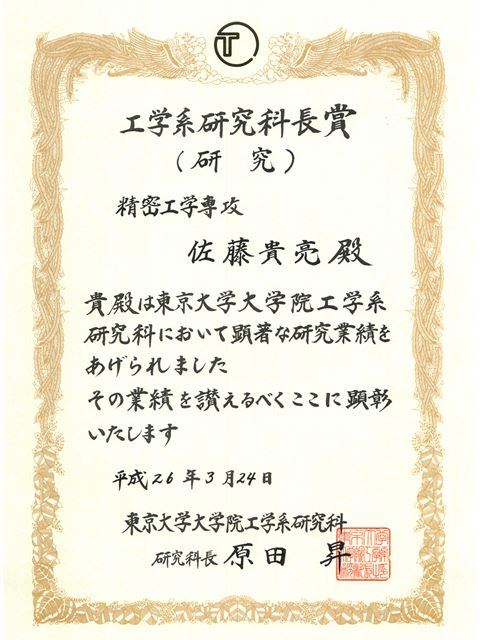 T
工学系研究科長賞
(研 究)
精密工学専攻
佐藤貴亮殿
貴殿は東京大学大学院工学系
研究科において顕著な研究業績を
あげられました
その業績を讃えるべくここに顕彰
いたします
平成26年3月24日
東京大学大学院工学系研究科
研究科長 原田 昇